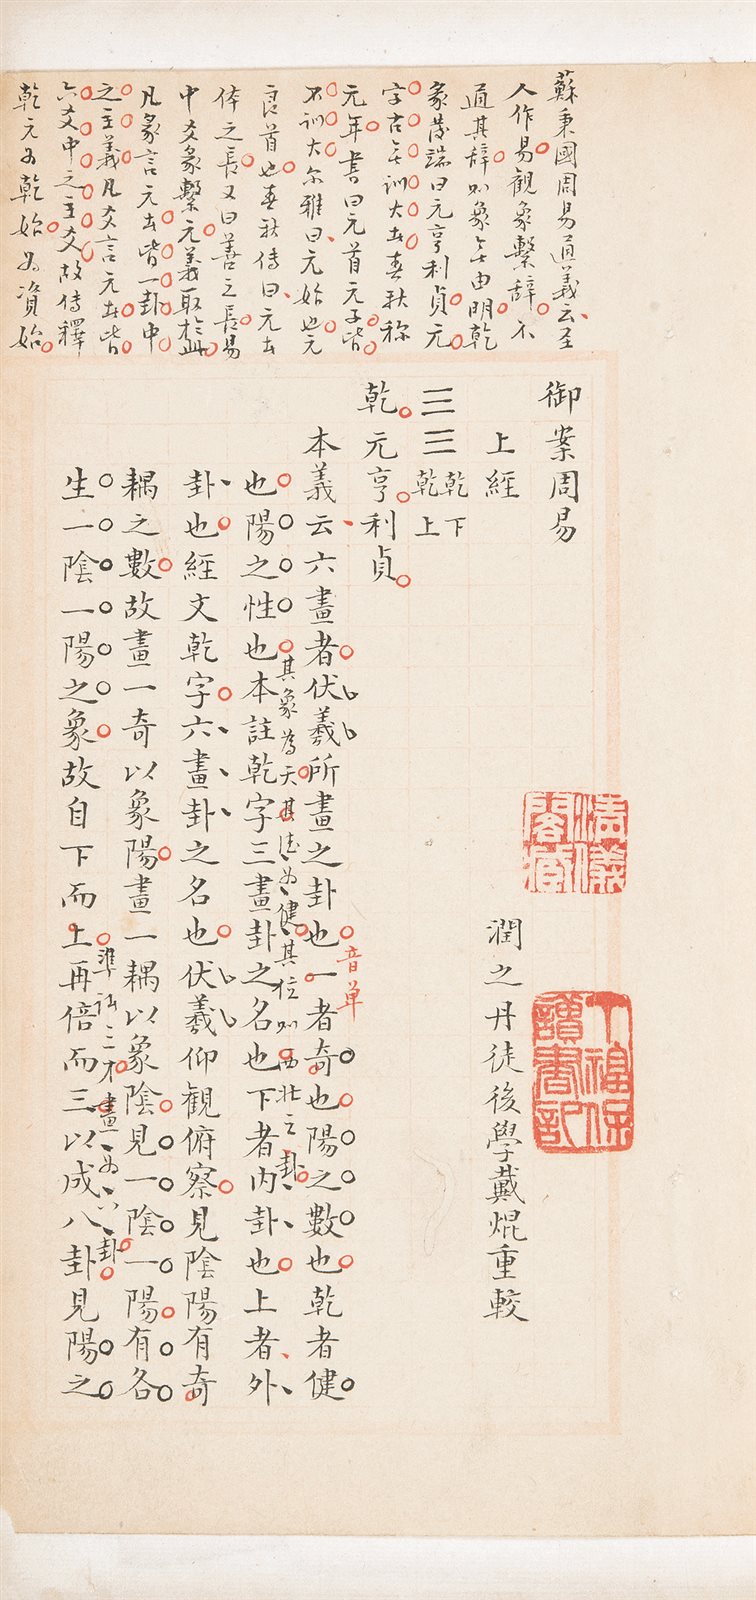 蘇秉國周易通義云圣
人作易觀象繫辭不
通其辭則象無由明乾
彖發端曰元亨利貞元
字古無訓大者春秋称
元年書曰元首元子皆
不訓大尔雅曰元始也元
良首也春秋傳曰元者
体之長又曰善之長易
中爻彖繫元義取於此
凡彖言元者皆一卦中
之主義凡爻言元者皆
六爻中之主爻故傳釋
乾元为乾始为資始
御案周易
清儀閣藏
丁福保讀書記
上經
潤之丹徒後學戴焜重較
☰☰乾下乾上
乾元亨利貞
音單
本義云六畫者伏羲所畫之卦也一者奇也陽之數也乾者健
其象為天其德为健其位則西北之卦
也陽之性也本註乾字三畫卦之名也下者內卦也上者外
卦也經文乾字六畫卦之名也伏羲仰觀俯察見陰陽有奇
耦之數故畫一奇以象陽畫一耦以象陰見一陰一陽有各
準諸三才畫为八卦
生一陰一陽之象故自下而上再倍而三以成八卦見陽之